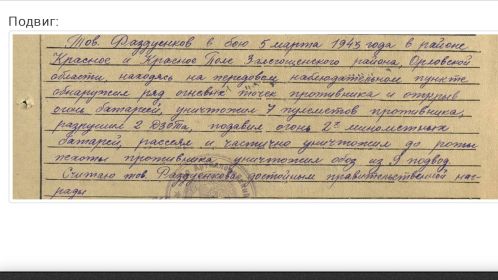 Подвиг:
Тов. Раздуенков в бою 5 марта 1943 года в районе
Красное и Красное Поле Залегощенского района, Орловской
области, находясь на передовом наблюдательном пункте
обнаружил ряд огневых точек противника и открыв
огонь батареей, уничтожил 7 пулеметов противника,
разрушил 2 дзота, подавил огонь 2х минометных
батарей, рассеял и частично уничтожил до роты
пехоты противника, уничтожил обоз из 9 подвод.
Считаю тов. Раздуенкова достойным правительственной наг-
рады